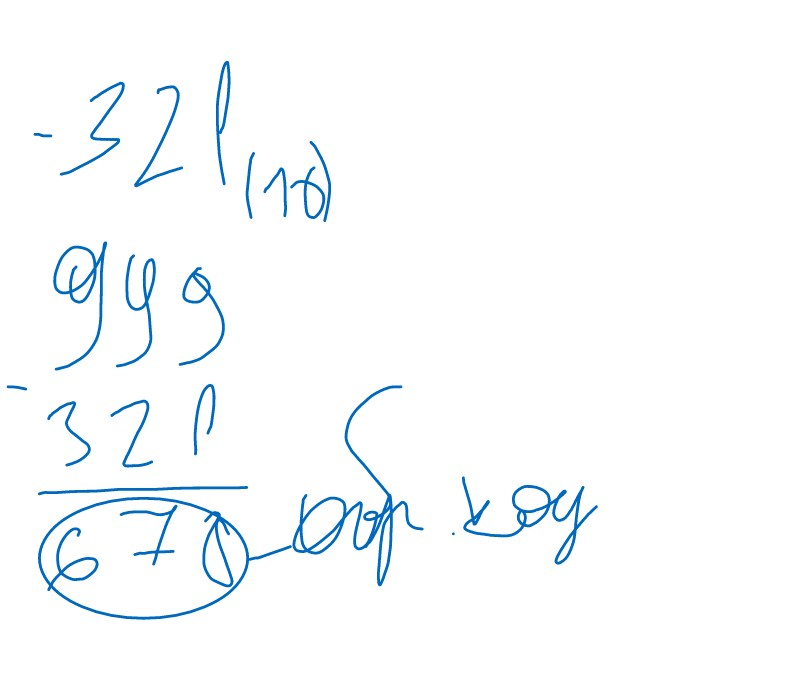 -321(10)
999
-
321
678 - обр. код